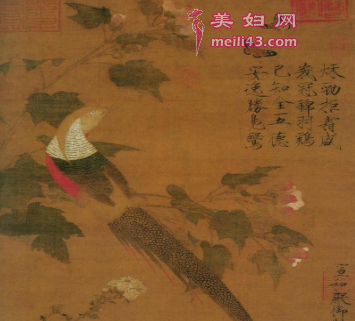 美妇网
meili43.com
秋勁拒霜盛
峩冠錦羽鷄
已知全五德
安逸勝鳧鷖
宣和殿御